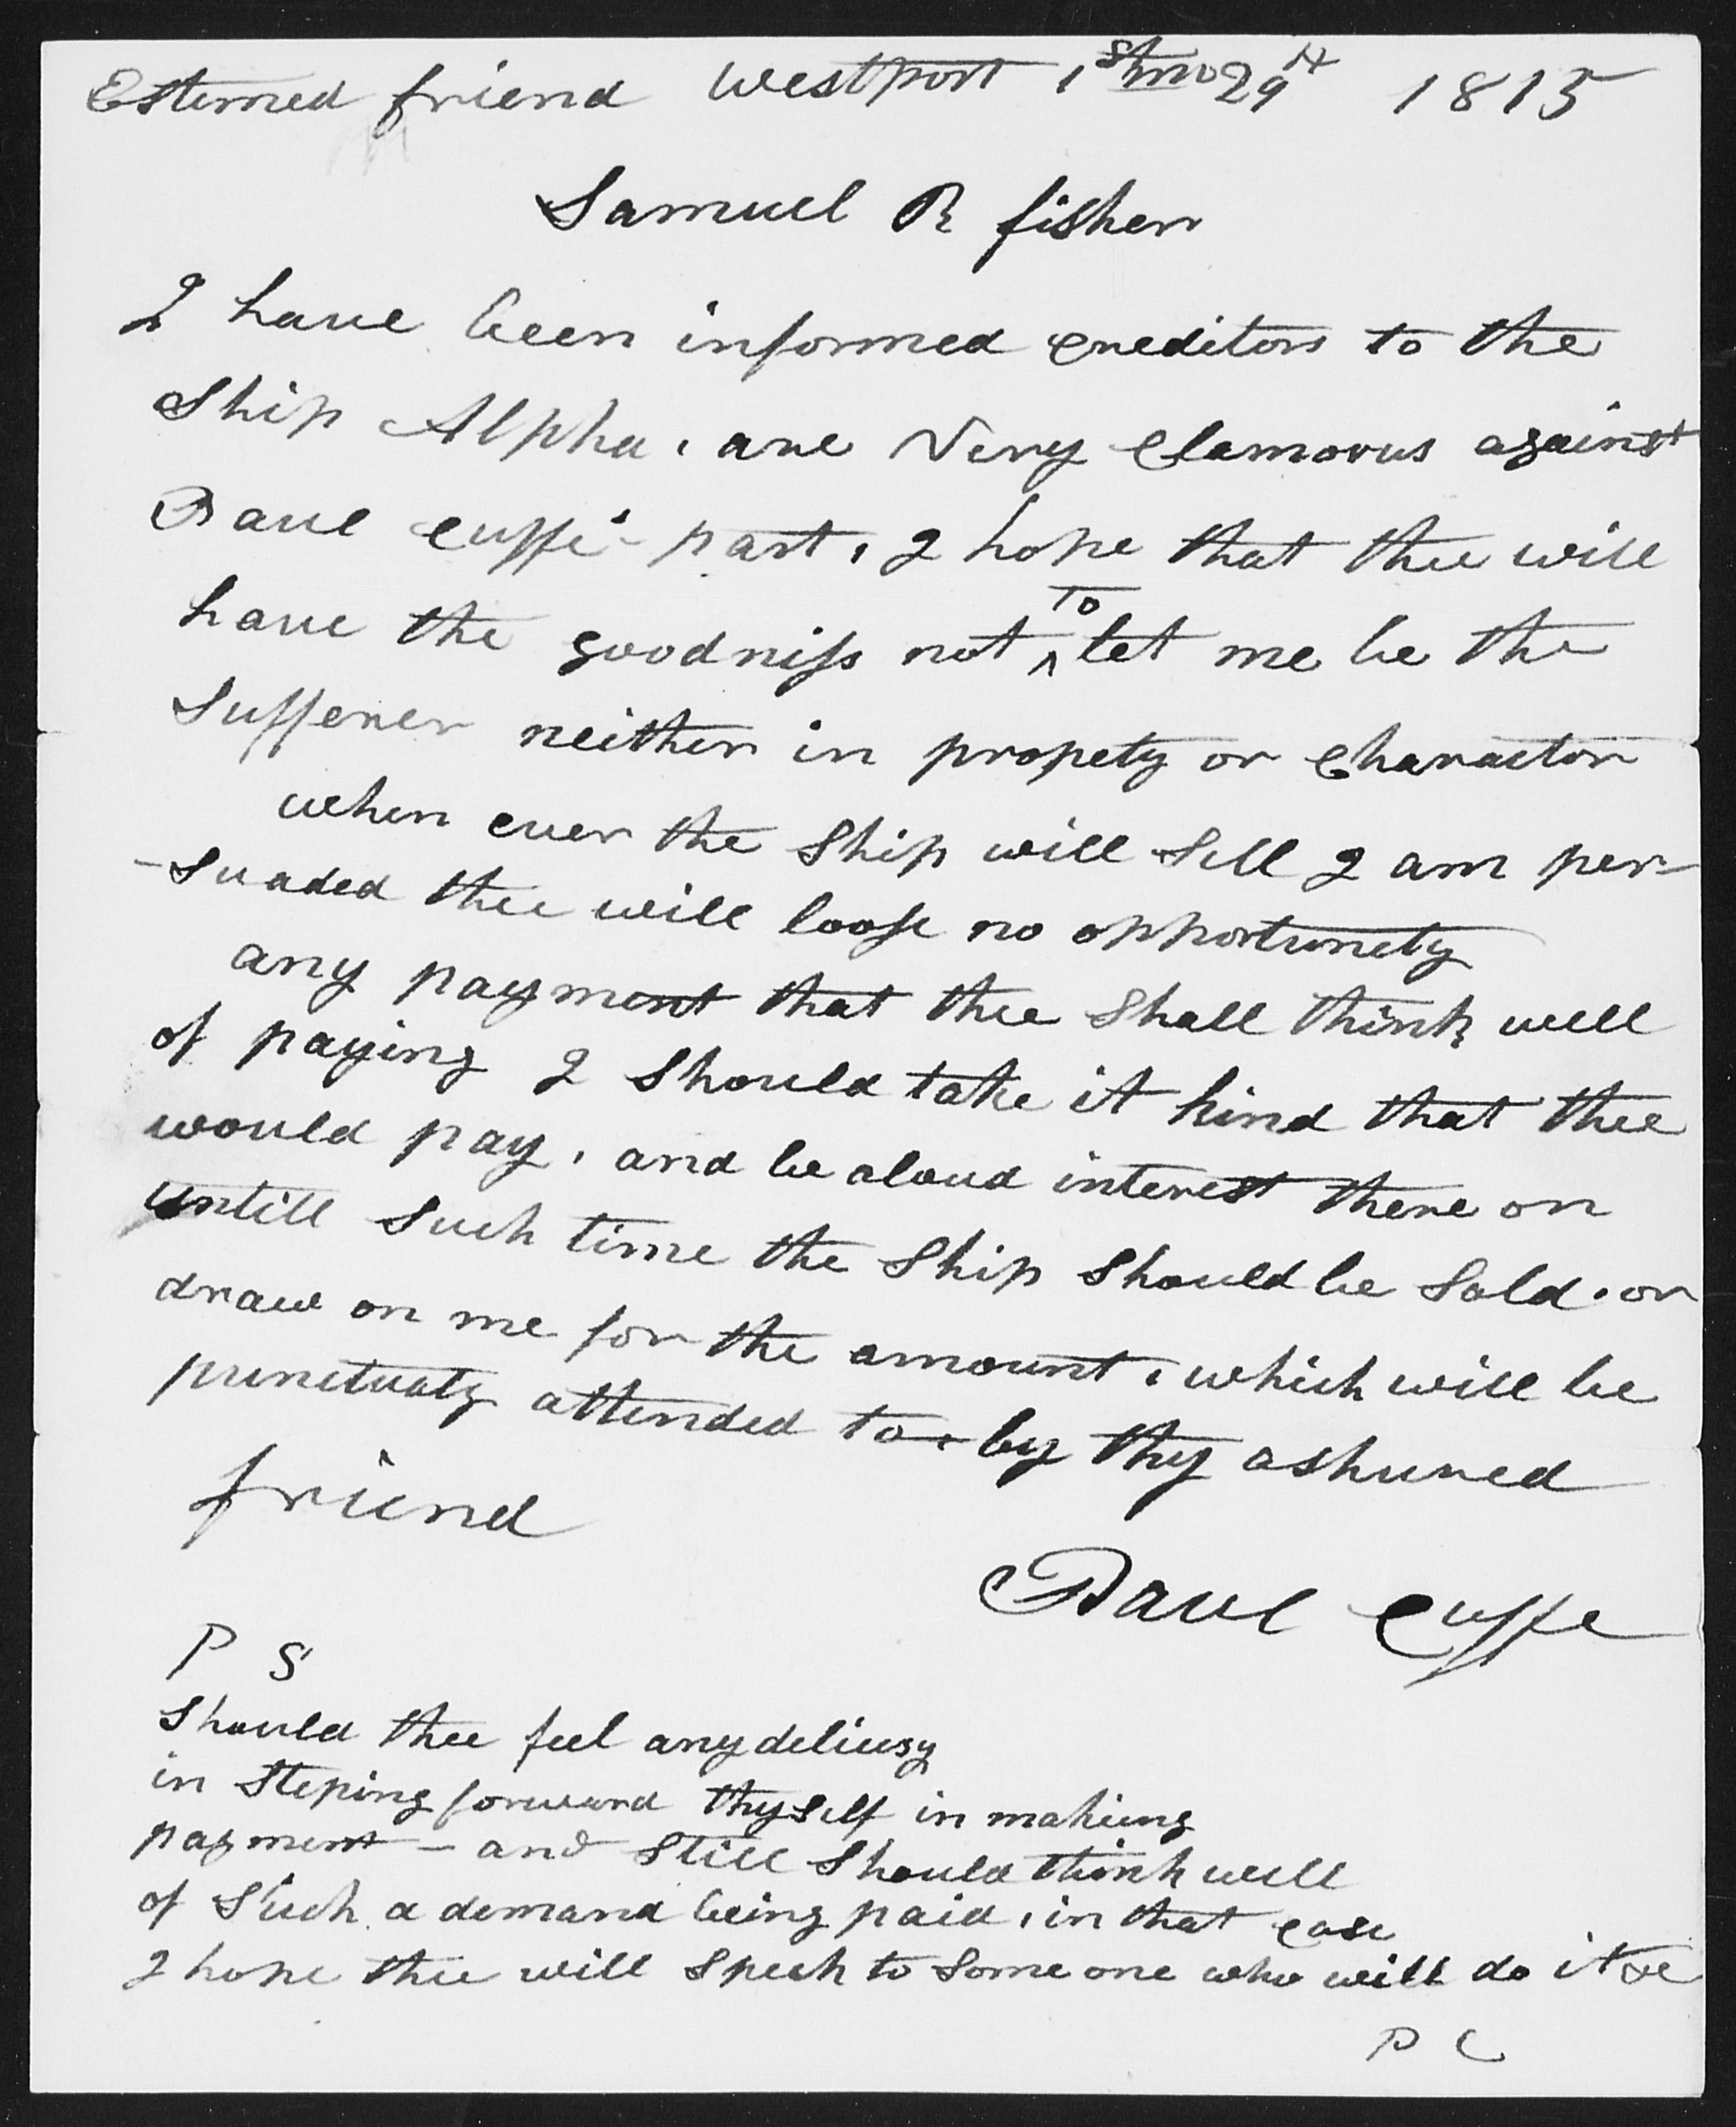 Estemed friend Westport 1st mo 29th 1815
Samuel R fisher
I have been informed creditors to the
Ship Alpha, are Very Clamorus against
Paul Cuffe's part, I hope that thee will
have the goodniss not ^ To let me be the
Sufferer neither in propety or Charactor
when ever the Ship will Sell I am per-
-Suaded thee will loose no opportunety
any payment that thee Shall think well
of paying I Should take it kind that thee
would pay, and be aloud interest there on
untill Such time the Ship Should be Sold. or
draw on me for the amount, which will be
punctualy attended to by thy ashured
friend
Paul Cuffe
P S
Should thee feel any delicusy
in Steping forward thyself in makieng
payment - and Still Should think well
of Such a demand being paid, in that case
I hope thee will Speek to Some one who will do it &c
P C